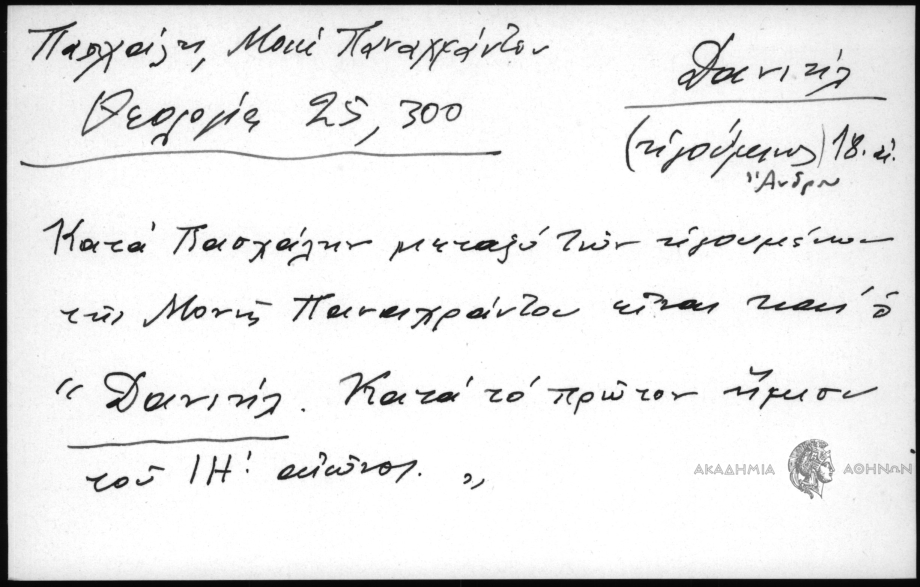 Πασχάλη, Μονή Παναχράντου
Θεολογία 25,300
Δανιήλ
(ηγούμενος) 18. αἰ.
Ἄνδρου
Κατά Πασχάλην μεταξύ τῶν ηγουμένων
τῆς Μονῆς Παναχράντου εἶναι καί ὁ
“ Δανιήλ. Κατά τό πρῶτον ἥμισυ
τοῦ ΙΗ! αἰῶνος. „
ΑΚΑΔΗΜΙΑ ΑΘΗΝΩΝ